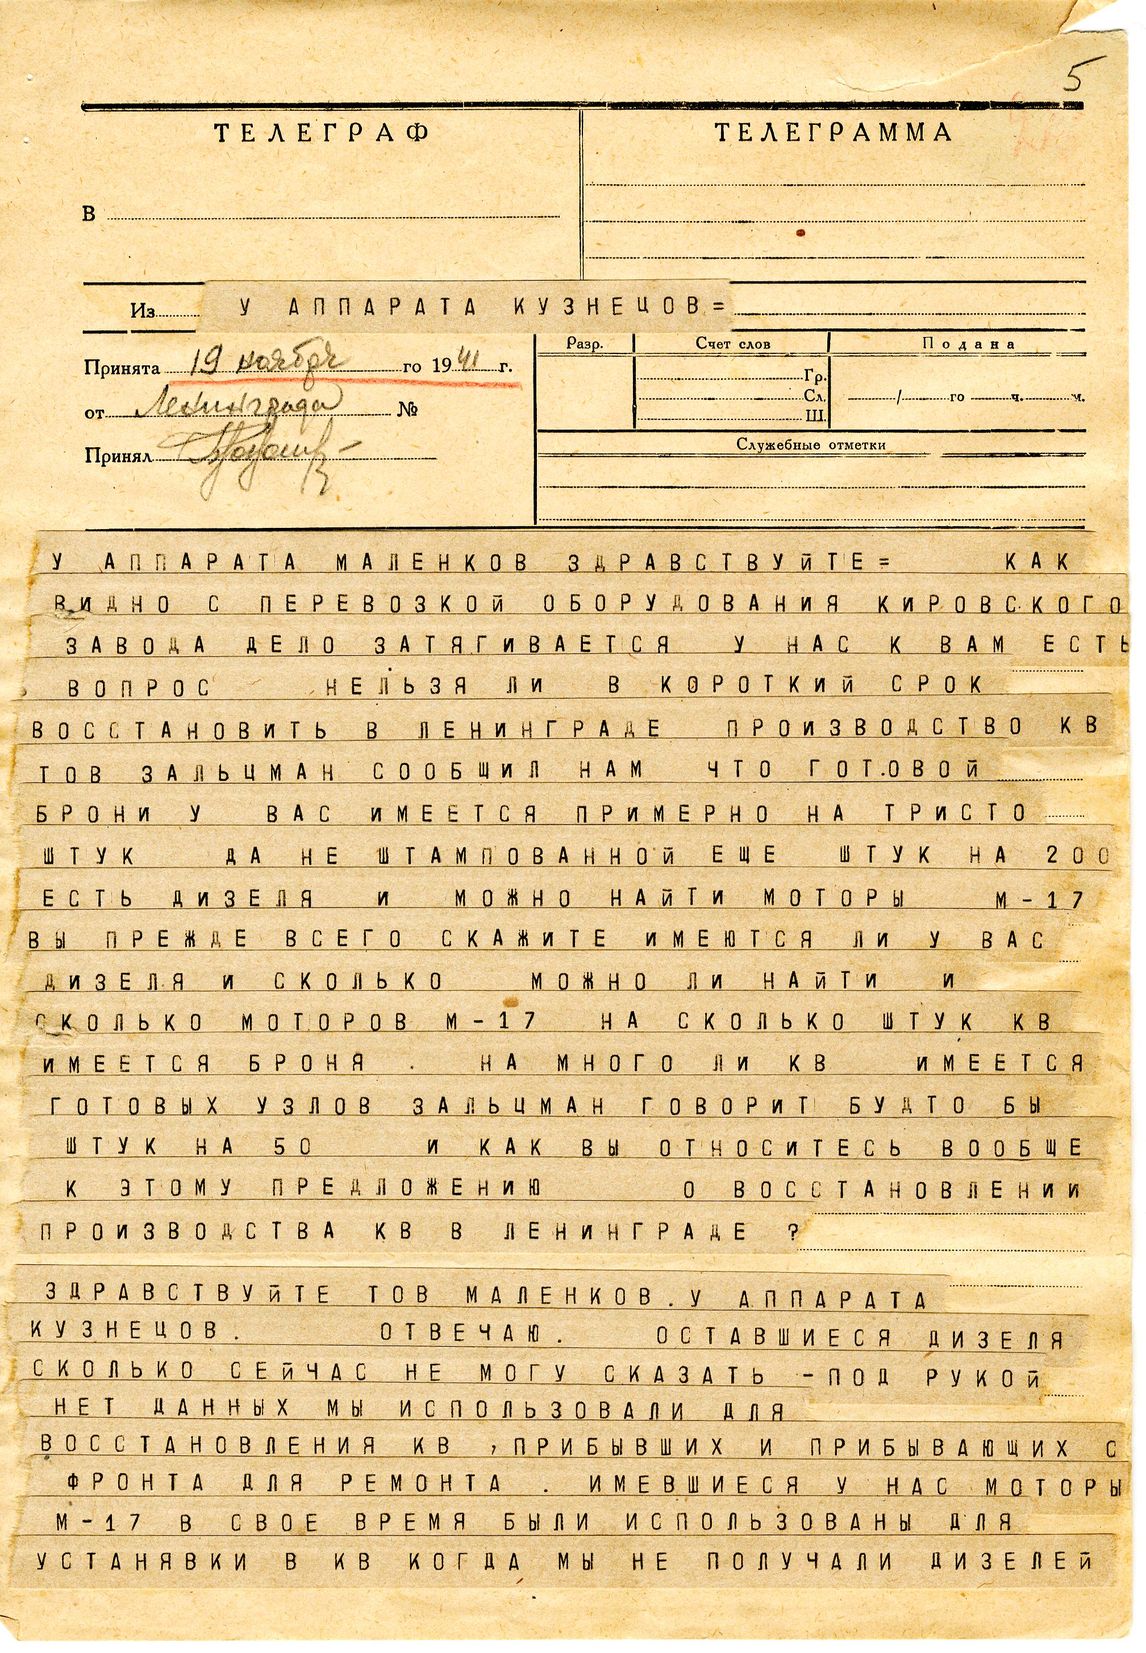 5
ТЕЛЕГРАФ
ТЕЛЕГРАММА
В
Из У АППАРАТА КУЗНЕЦОВ=
Принята 19 ноября го 1941 г.
от Ленинграда №
Принял
Разр.
Счет слов
Подана
Гр.
Сл.
Ш.
/ го ч. м.
Служебные отметки
У АППАРАТА МАЛЕНКОВ ЗДРАВСТВУЙТЕ= КАК
ВИДНО С ПЕРЕВОЗКОЙ ОБОРУДОВАНИЯ КИРОВСКОГО
ЗАВОДА ДЕЛО ЗАТЯГИВАЕТСЯ У НАС К ВАМ ЕСТЬ
ВОПРОС НЕЛЬЗЯ ЛИ В КОРОТКИЙ СРОК
ВОССТАНОВИТЬ В ЛЕНИНГРАДЕ ПРОИЗВОДСТВО КВ
ТОВ ЗАЛЬЦМАН СООБЩИЛ НАМ ЧТО ГОТ.ОВОЙ
БРОНИ У ВАС ИМЕЕТСЯ ПРИМЕРНО НА ТРИСТО
ШТУК ДА НЕ ШТАМПОВАННОЙ ЕЩЕ ШТУК НА 200
ЕСТЬ ДИЗЕЛЯ И МОЖНО НАЙТИ МОТОРЫ М-17
ВЫ ПРЕЖДЕ ВСЕГО СКАЖИТЕ ИМЕЮТСЯ ЛИ У ВАС
ДИЗЕЛЯ И СКОЛЬКО МОЖНО ЛИ НАЙТИ И
СКОЛЬКО МОТОРОВ М-17 НА СКОЛЬКО ШТУК КВ
ИМЕЕТСЯ БРОНЯ . НА МНОГО ЛИ КВ ИМЕЕТСЯ
ГОТОВЫХ УЗЛОВ ЗАЛЬЦМАН ГОВОРИТ БУДТО БЫ
ШТУК НА 50 И КАК ВЫ ОТНОСИТЕСЬ ВООБЩЕ
К ЭТОМУ ПРЕДЛОЖЕНИЮ О ВОССТАНОВЛЕНИИ
ПРОИЗВОДСТВА КВ В ЛЕНИНГРАДЕ ?
ЗДРАВСТВУЙТЕ ТОВ МАЛЕНКОВ.У АППАРАТА
КУЗНЕЦОВ. ОТВЕЧАЮ. ОСТАВШИЕСЯ ДИЗЕЛЯ
СКОЛЬКО СЕЙЧАС НЕ МОГУ СКАЗАТЬ -ПОД РУКОЙ
НЕТ ДАННЫХ МЫ ИСПОЛЬЗОВАЛИ ДЛЯ
ВОССТАНОВЛЕНИЯ КВ ,ПРИБЫВШИХ И ПРИБЫВАЮЩИХ С
ФРОНТА ДЛЯ РЕМОНТА . ИМЕВШИЕСЯ У НАС МОТОРЫ
М-17 В СВОЕ ВРЕМЯ БЫЛИ ИСПОЛЬЗОВАНЫ ДЛЯ
УСТАНЯВКИ В КВ КОГДА МЫ НЕ ПОЛУЧАЛИ ДИЗЕЛЕЙ